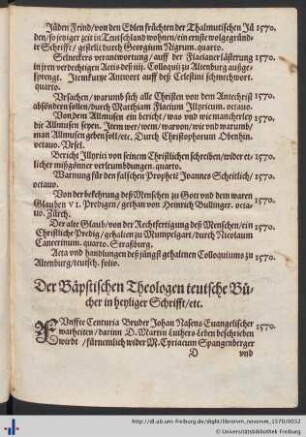 Jüden Feind/von den Edlen früchten der Thalmutischen Jü 1570.
den/so jetziger zeit in Teutschland wohnen/ein ernste wolgegründ-
te Schrifft/gestelt durch Georgium Nigrum. quarto.
Schneckers verantwortung/auff der Flacianer lästerung 1570.
in jren verdechtigen Actis deß Colloquij zu Altenburg außge-
sprengt. Item kurtze Antwort auff deß Celestini schmechwort.
quarto.
Vrsachen/warumb sich alle Christen von dem Antechrist 1570.
absöndern sollen/durch Matthiam Flacium Illyricum. octauo.
Von dem Allmusen ein bericht/was vnd wie mancherley 1570.
die Allmusen seyen. Item wer/wem/warvon/wie vnd warumb/
man Allmusen geben soll/etc. Durch Christophorum Obenhin.
octauo. Vrsel.
Bericht Illyrici von seinem Christlichen schreiben/wider et- 1570.
licher mißgönner verleumbdungen. quarto.
Warnung für den falschen Prophete Joannes Scheitlich/ 1570.
octauo.
Von der bekehrung deß Menschen zu Gott vnd dem waren 1570.
Glauben VI. Predigen/gethan von Heinrich Bullinger. octa-
uo. Zürch.
Der alte Glaub/von der Rechtfertigung deß Menschen/ein 1570.
Christliche Predig/gehalten zu Mumpelgart/durch Nicolaum
Cancerinum. quarto. Straßburg.
Acta vnd handlungen deß jüngst gehaltenen Colloquiums zu 1570.
Altenburg/teutsch. folio.
Der Bäpstischen Theologen teutsche Bü-
cher in heyliger Schrifft/etc.
Fünffte Centuria Bruder Johan Nasens Euangelischer 1570.
warheiten/darinn D. Martin Luthers Leben beschrieben
wirdt/fürnemlich wider M. Cyriacum Spangenberger
D vnd
http://dl.ub.uni-freiburg.de/diglit/librorum_novorum_1570/0032
© Universitätsbibliothek Freiburg